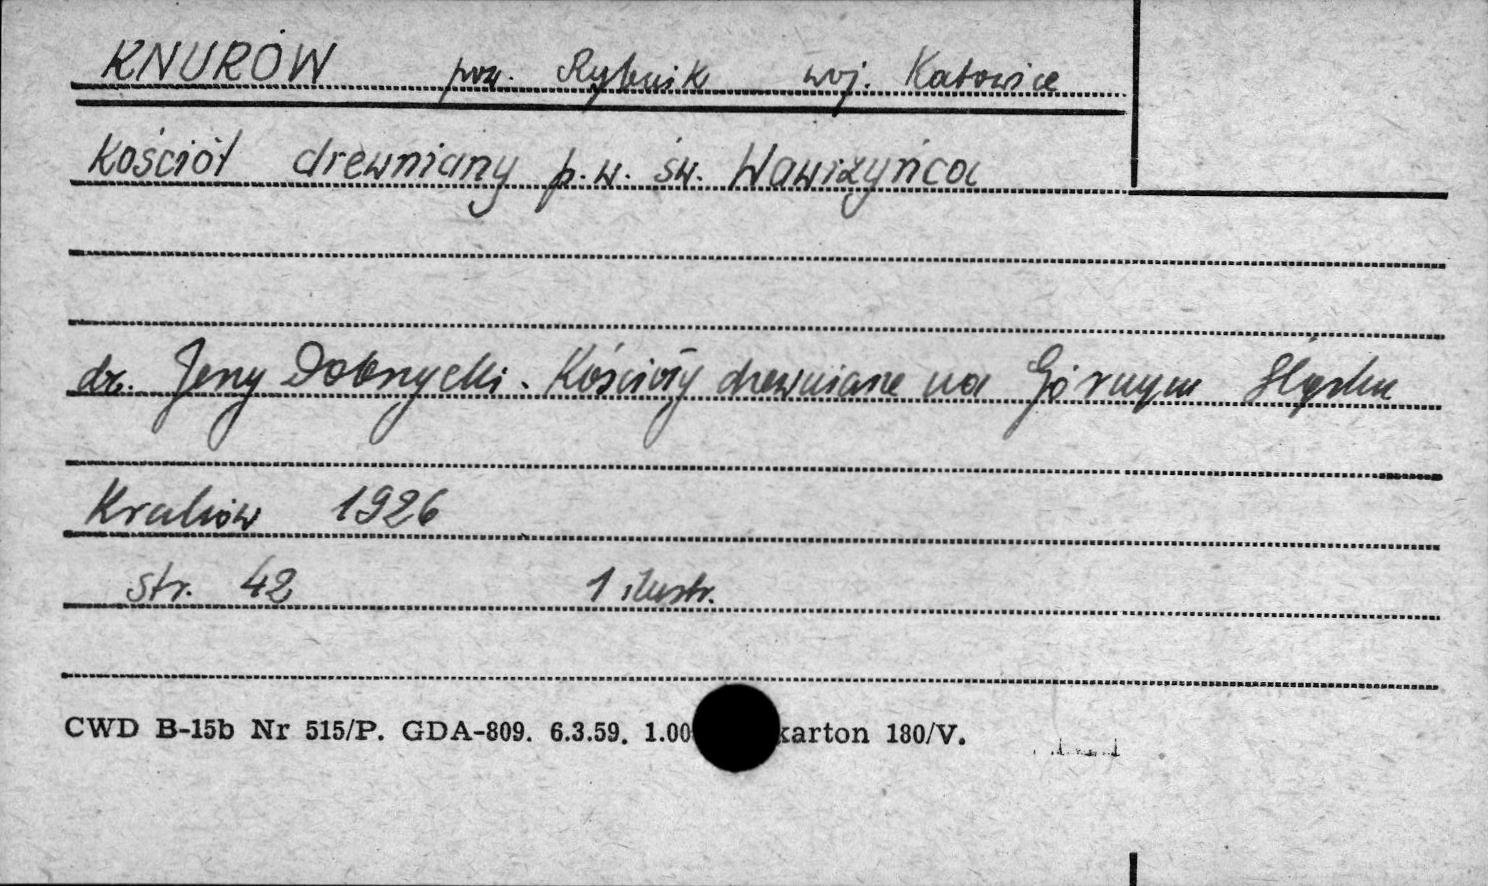 KNURÓW pow. Rybnik woj. Katowice
Kościół drewniany p.w. św. Wawrzyńca
dr. Jerzy Dobrzycki. Kościoły drewniane na Górnym Śląsku
Kraków 1926
str. 42 1 ilustr.
CWD B-15b Nr 515/P. GDA-809. 6.3.59. 1.00 karton 180/V.